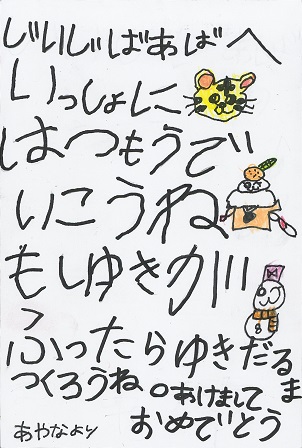 じいじばあばへ
いっしょに
はつもうで
いこうね
もしゆきが
ふったらゆきだるま
つくろうね。あけまして
おめでとう
あやなより